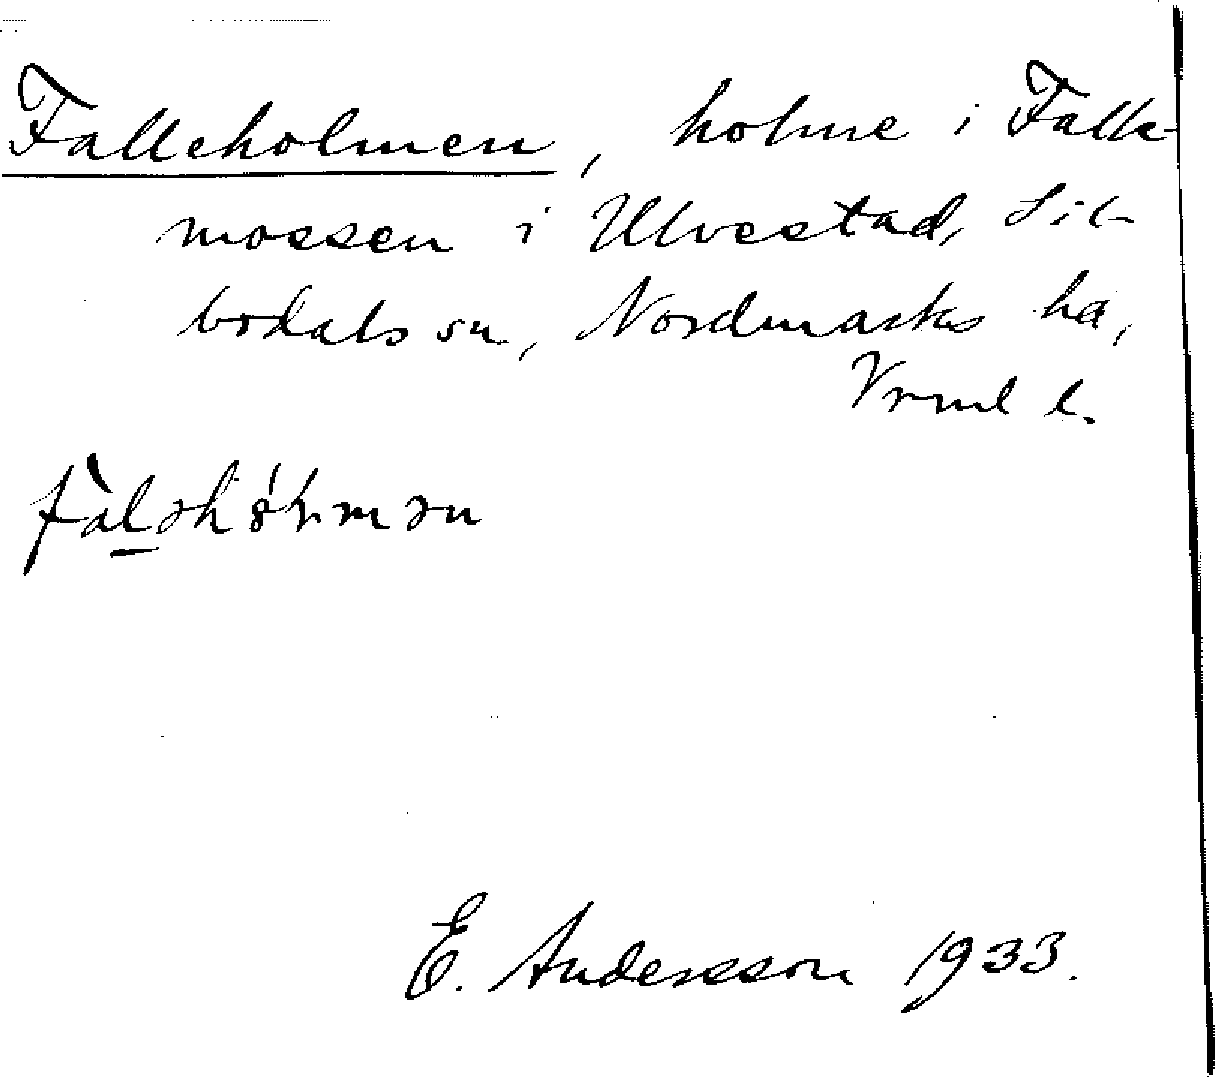 Falleholmen, holme i Falle-
mossen i Ulvestad, Sil-
bodals sn, Nordmarks hd,
Vrml l.
E. Andersson 1933.